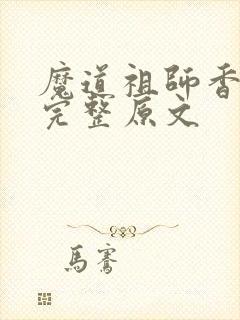 魔道祖師香
完整原文
馬騫